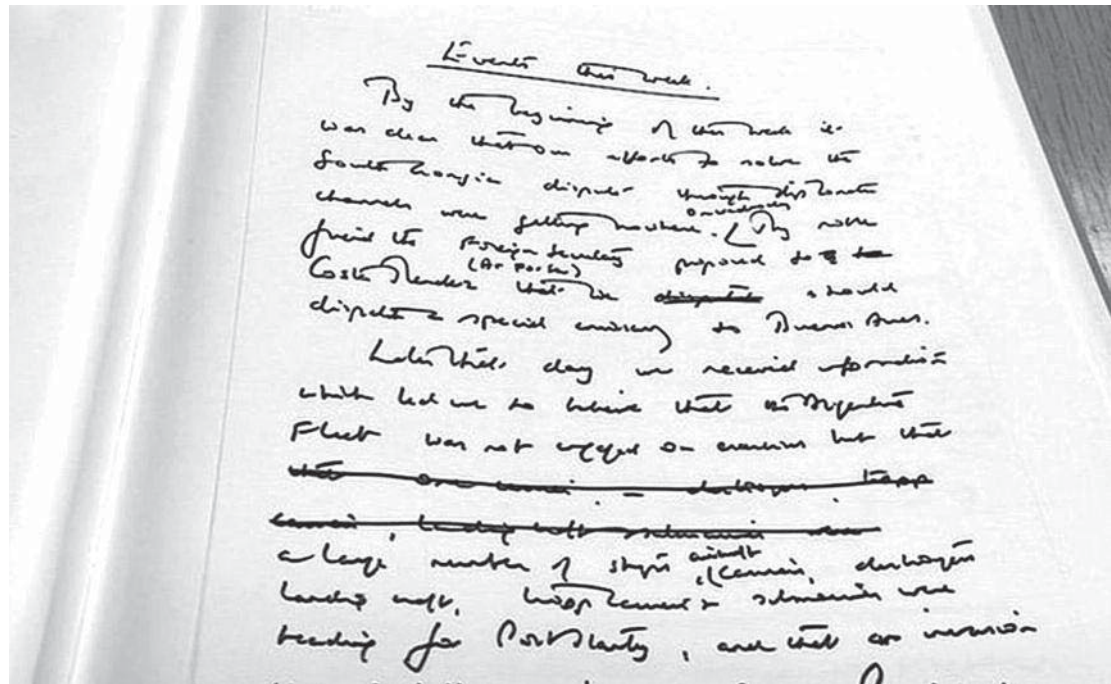 Events this week.
By the beginning of this week it
was clear that our efforts to solve the
South Georgia dispute through diplomatic
channels were getting nowhere. My noble
friend the Foreign Secretary proposed to
(Ld Carrington)
Costa Mendez that we should
dispatch a special emissary to Buenos Aires.
Later that day we received information
which led us to believe that the Argentine
Fleet was not engaged on exercises but that
a large number of ships, aircraft carrier, destroyers
landing craft, troop carriers & submarines were
heading for Port Stanley, and that an invasion